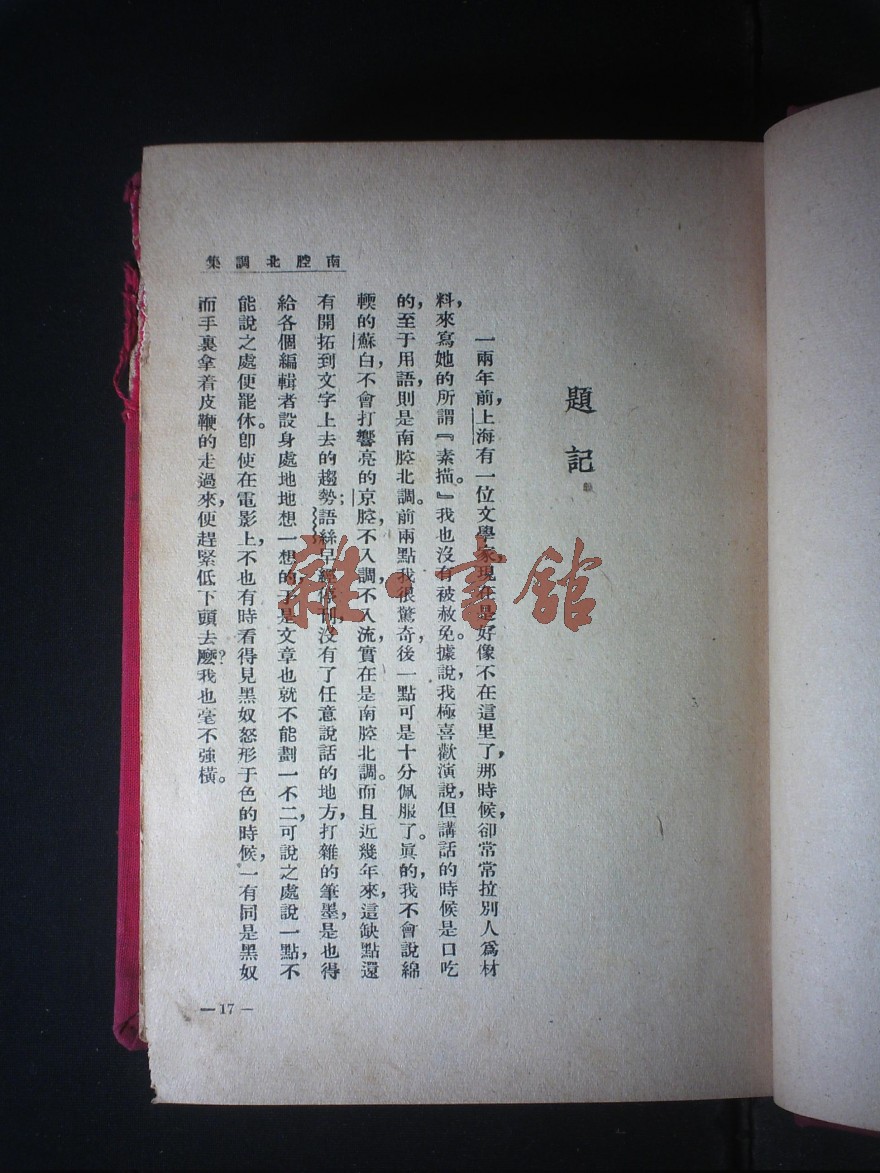 南腔北調集
題記
一兩年前，上海有一位文學家，現在是好像不在這里了，那時候，卻常常拉別人爲材
料，來寫她的所謂『素描。』我也沒有被赦免。據說，我極喜歡演說，但講話的時候是口吃
的，至于用語，則是南腔北調。前兩點我很驚奇，後一點可是十分佩服了。眞的，我不會說綿
輭的蘇白，不會打響亮的京腔，不入調，不入流，實在是南腔北調。而且近幾年來，這缺點還
有開拓到文字上去的趨勢；語絲早經停刊，沒有了任意說話的地方，打雜的筆墨，是也得
給各個編輯者設身處地地想一想的，于是文章也就不能劃一不二，可說之處說一點，不
能說之處便罷休。卽使在電影上，不也有時看得見黑奴怒形于色的時候，一有同是黑奴
而手裏拿着皮鞭的走過來，便趕緊低下頭去麽？我也毫不強橫。
— 17 —
雜·書館